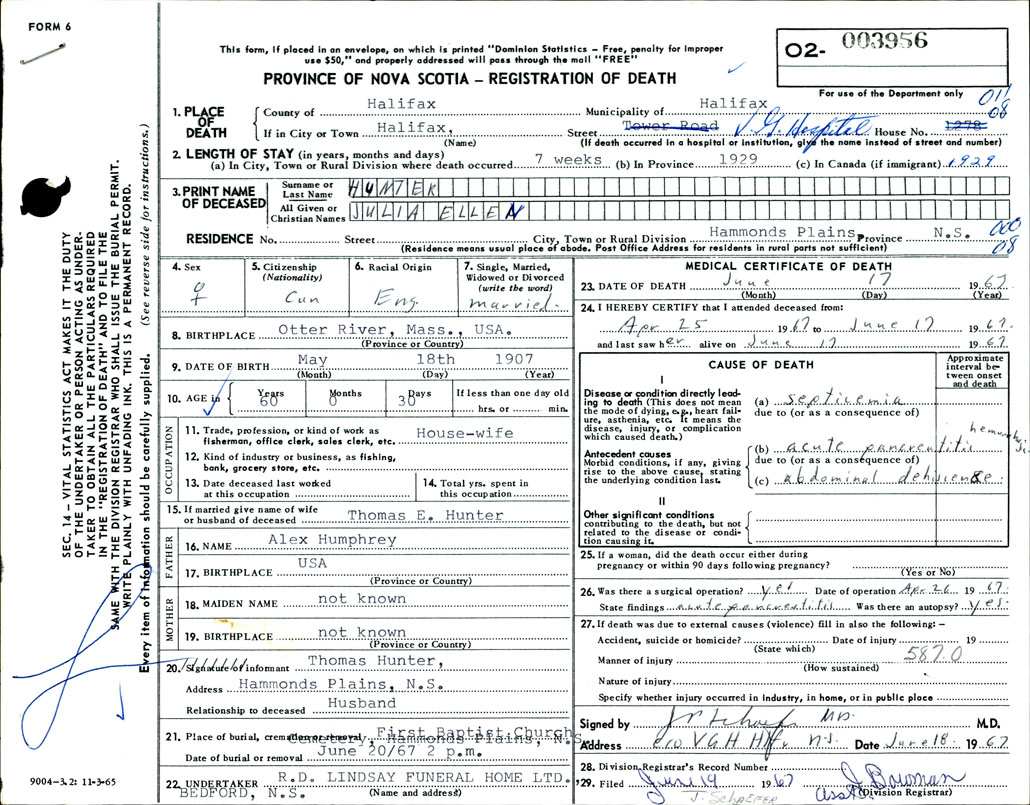 FORM 6
This form, if placed in an envelope, on which is printed "Dominion Statistics – Free, penalty for improper
use $50," and properly addressed will pass through the mail "FREE"
PROVINCE OF NOVA SCOTIA – REGISTRATION OF DEATH
02- 003956
For use of the Department only
011
08
1. PLACE OF DEATH
County of Halifax Municipality of Halifax
If in City or Town Halifax, Street Tower Road V.G. Hospital House No. 1278
(Name) (If death occurred in a hospital or institution, give the name instead of street and number)
2. LENGTH OF STAY (in years, months and days)
(a) In City, Town or Rural Division where death occurred 7 weeks (b) In Province 1929 (c) In Canada (if immigrant) 1929
3. PRINT NAME OF DECEASED
Surname or Last Name HUNTER
All Given or Christian Names JULIA ELLEN
RESIDENCE No. Street City, Town or Rural Division Hammonds Plains, Province N.S.
000
08
(Residence means usual place of abode. Post Office Address for residents in rural parts not sufficient)
4. Sex ♀
5. Citizenship (Nationality) Can
6. Racial Origin Eng.
7. Single, Married, Widowed or Divorced (write the word) married.
8. BIRTHPLACE Otter River, Mass., USA.
(Province or Country)
9. DATE OF BIRTH May 18th 1907
(Month) (Day) (Year)
10. AGE in Years 60 Months 0 Days 30 If less than one day old
hrs. or min.
OCCUPATION
11. Trade, profession, or kind of work as fisherman, office clerk, sales clerk, etc. House-wife
12. Kind of industry or business, as fishing, bank, grocery store, etc.
13. Date deceased last worked at this occupation
14. Total yrs. spent in this occupation
15. If married give name of wife or husband of deceased Thomas E. Hunter
FATHER
16. NAME Alex Humphrey
17. BIRTHPLACE USA
(Province or Country)
MOTHER
18. MAIDEN NAME not known
19. BIRTHPLACE not known
(Province or Country)
20. Signature of informant Thomas Hunter,
Address Hammonds Plains, N.S.
Relationship to deceased Husband
21. Place of burial, cremation or removal First Baptist Church
Cemetery, Hammonds Plains, N.S.
Date of burial or removal June 20/67 2 p.m.
22. UNDERTAKER R.D. LINDSAY FUNERAL HOME LTD.
BEDFORD, N.S. (Name and address)
MEDICAL CERTIFICATE OF DEATH
23. DATE OF DEATH June 17 1967
(Month) (Day) (Year)
24. I HEREBY CERTIFY that I attended deceased from:
Apr 25 1967 to June 17 1967.
and last saw her alive on June 17 1967.
CAUSE OF DEATH
Approximate interval between onset and death
I
Disease or condition directly leading to death (This does not mean the mode of dying, e.g., heart failure, asthenia, etc. It means the disease, injury, or complication which caused death.)
(a) septicemia
due to (or as a consequence of)
Antecedent causes
Morbid conditions, if any, giving rise to the above cause, stating the underlying condition last.
(b) acute pancreatitis
due to (or as a consequence of)
(c) abdominal dehiscense.
II
Other significant conditions
contributing to the death, but not related to the disease or condition causing it.
25. If a woman, did the death occur either during pregnancy or within 90 days following pregnancy?
(Yes or No)
26. Was there a surgical operation? yes Date of operation Apr 26 1967.
State findings acute pancreatitis Was there an autopsy? yes.
27. If death was due to external causes (violence) fill in also the following: –
Accident, suicide or homicide? Date of injury 19
(State which)
587.0
Manner of injury
(How sustained)
Nature of injury
Specify whether injury occurred in industry, in home, or in public place
Signed by MD. M.D.
Address c/o V.G.H. Hfx N.S. Date June 18. 1967
28. Division Registrar's Record Number
29. Filed June 19 1967 J. Bowman
J. SCHAEFER Asst. (Division Registrar)
SEC. 14 – VITAL STATISTICS ACT MAKES IT THE DUTY
OF THE UNDERTAKER OR PERSON ACTING AS UNDER-
TAKER TO OBTAIN ALL THE PARTICULARS REQUIRED
IN THE "REGISTRATION OF DEATH" AND TO FILE THE
SAME WITH THE DIVISION REGISTRAR WHO SHALL ISSUE THE BURIAL PERMIT.
WRITE PLAINLY WITH UNFADING INK. THIS IS A PERMANENT RECORD.
Every item of Information should be carefully supplied. (See reverse side for instructions.)
9004-3.2: 11-3-65